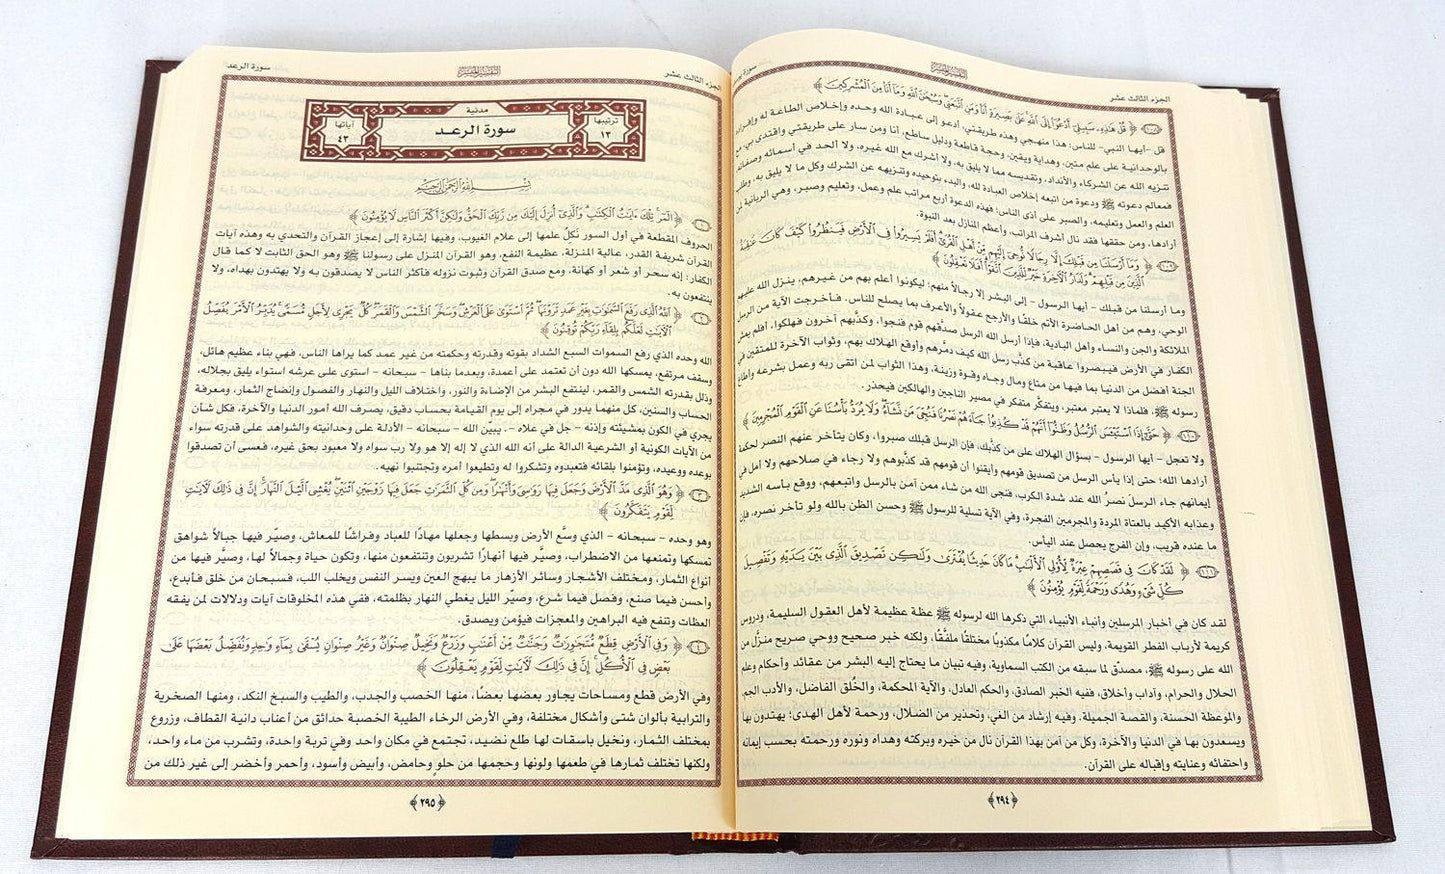 الجزء الثالث عشر
التفسير الميسر
سورة يوسف
﴿١٠٨﴾ ﴿ قُلْ هَٰذِهِۦ سَبِيلِىٓ أَدْعُوٓا۟ إِلَى ٱللَّهِ عَلَىٰ بَصِيرَةٍ أَنَا۠ وَمَنِ ٱتَّبَعَنِى وَسُبْحَٰنَ ٱللَّهِ وَمَآ أَنَا۠ مِنَ ٱلْمُشْرِكِينَ ﴾
قل -أيها النبي- للناس: هذا منهجي وهذه طريقتي، أدعو إلى عبادة الله وحده وإخلاص الطاعة له وإفراده
بالوحدانية على علم متين، وهداية ويقين، وحجة قاطعة ودليل ساطع، أنا ومن سار على طريقتي واقتدى بي، مع
تنزيه الله عن الشركاء والأنداد، وتقديسه مما لا يليق به، ولا أشرك مع الله غيره، ولا ألحد في أسمائه وصفاته،
فمعالم دعوته ﷺ ودعوة من اتبعه إخلاص العبادة لله، والبدء بتوحيده وتنزيهه عن الشرك وكل ما لا يليق به، وطلب
العلم والعمل وتعليمه، والصبر على أذى الناس؛ فهذه الدعوة أربع مراتب علم وعمل، وتعليم وصبر، وهي الربانية لمن
أرادها، ومن حققها فقد نال أشرف المراتب، وأعظم المنازل بعد النبوة.
﴿١٠٩﴾ ﴿ وَمَآ أَرْسَلْنَا مِن قَبْلِكَ إِلَّا رِجَالًا نُّوحِىٓ إِلَيْهِم مِّنْ أَهْلِ ٱلْقُرَىٰٓ أَفَلَمْ يَسِيرُوا۟ فِى ٱلْأَرْضِ فَيَنظُرُوا۟ كَيْفَ كَانَ عَٰقِبَةُ
ٱلَّذِينَ مِن قَبْلِهِمْ وَلَدَارُ ٱلْءَاخِرَةِ خَيْرٌ لِّلَّذِينَ ٱتَّقَوْا۟ أَفَلَا تَعْقِلُونَ ﴾
وما أرسلنا من قبلك - أيها الرسول - إلى البشر إلا رجالاً منهم؛ ليكونوا أعلم بهم من غيرهم، ينزل الله عليهم
الوحي، وهم من أهل الحاضرة الأتم خلقًا والأرجح عقولاً والأعرف بما يصلح للناس. فأخرجت الآية من الرسل
الملائكة والجن والنساء وأهل البادية، فإذا أرسل الله الرسل صدَّقهم قوم فنجوا، وكذَّبهم آخرون فهلكوا، أفلم يمش
الكفار في الأرض فيبصروا عاقبة من كذَّب رسل الله كيف دمَّرهم وأوقع الهلاك بهم، وثواب الآخرة للمتقين في
الجنة أفضل من الدنيا بما فيها من متاع ومال وجاه وقوة وزينة، وهذا الثواب لمن اتقى ربه وعمل بشرعه وأطاع
رسوله ﷺ. فلماذا لا يعتبر معتبر، ويتفكَّر متفكر في مصير الناجين والهالكين فيحذر.
﴿١١٠﴾ ﴿ حَتَّىٰٓ إِذَا ٱسْتَيْـَٔسَ ٱلرُّسُلُ وَظَنُّوٓا۟ أَنَّهُمْ قَدْ كُذِبُوا۟ جَآءَهُمْ نَصْرُنَا فَنُجِّىَ مَن نَّشَآءُ وَلَا يُرَدُّ بَأْسُنَا عَنِ ٱلْقَوْمِ ٱلْمُجْرِمِينَ ﴾
ولا تعجل - أيها الرسول - بسؤال الهلاك على من كذَّبك، فإن الرسل قبلك صبروا، وكان يتأخر عنهم النصر لحكمة
أرادها الله؛ حتى إذا يأس الرسل من تصديق قومهم وأيقنوا أن قومهم قد كذَّبوهم ولا رجاء في صلاحهم ولا أمل في
إيمانهم جاء الرسلَ نصرُ الله عند شدة الكرب، فنجى الله من شاء ممن آمن بالرسل واتبعهم، ووقع بأسه الشديد
وعذابه الأكيد بالعتاة المردة والمجرمين الفجرة، وفي الآية تسلية للرسول ﷺ وحسن الظن بالله ولو تأخر نصره، فإن
ما عنده قريب، وإن الفرج يحصل عند الياس.
﴿١١١﴾ ﴿ لَقَدْ كَانَ فِى قَصَصِهِمْ عِبْرَةٌ لِّأُو۟لِى ٱلْأَلْبَٰبِ مَا كَانَ حَدِيثًا يُفْتَرَىٰ وَلَٰكِن تَصْدِيقَ ٱلَّذِى بَيْنَ يَدَيْهِ وَتَفْصِيلَ
كُلِّ شَىْءٍ وَهُدًى وَرَحْمَةً لِّقَوْمٍ يُؤْمِنُونَ ﴾
لقد كان في أخبار المرسلين وأنباء الأنبياء، التي ذكرها الله لرسوله ﷺ عظة عظيمة لأهل العقول السليمة، ودروس
كريمة لأرباب الفطر القويمة، وليس القرآن كلامًا مكذوبًا مختلقًا ملفَّقًا، ولكنه خبر صحيح ووحي صريح منزَّل من
الله على رسوله ﷺ، مصدّق لما سبقه من الكتب السماوية، وفيه تبيان ما يحتاج إليه البشر من عقائد وأحكام وعلم
الحلال والحرام، وآداب وأخلاق، ففيه الخبر الصادق، والحكم العادل، والآية المحكمة، والخُلق الفاضل، والأدب الجم
والموعظة الحسنة، والقصة الجميلة، وفيه إرشاد من الغي، وتحذير من الضلال، ورحمة لأهل الهدى؛ يهتدون بها
ويسعدون بها في الدنيا والآخرة، وكل من آمن بهذا القرآن نال من خيره وبركته وهداه ونوره ورحمته بحسب إيمانه
واحتفائه وعنايته وإقباله على القرآن.
﴿٢٩٤﴾
الجزء الثالث عشر
التفسير الميسر
سورة الرعد
ترتيبها ١٣
مدنية
سورة الرعد
آياتها ٤٣
بِسْمِ ٱللَّهِ ٱلرَّحْمَٰنِ ٱلرَّحِيمِ
﴿١﴾ ﴿ الٓمٓر تِلْكَ ءَايَٰتُ ٱلْكِتَٰبِ وَٱلَّذِىٓ أُنزِلَ إِلَيْكَ مِن رَّبِّكَ ٱلْحَقُّ وَلَٰكِنَّ أَكْثَرَ ٱلنَّاسِ لَا يُؤْمِنُونَ ﴾
الحروف المقطعة في أول السور نَكِلُ علمها إلى علام الغيوب، وفيها إشارة إلى إعجاز القرآن والتحدي به وهذه آيات
القرآن شريفة القدر، عالية المنزلة، عظيمة النفع، هو القرآن المنزل على رسولنا ﷺ وهو الحق الثابت لا كما قال
الكفار: إنه سحر أو شعر أو كهانة، ومع صدق القرآن وثبوت نزوله فأكثر الناس لا يصدقون به ولا يهتدون بهداه، ولا
ينتفعون به.
﴿٢﴾ ﴿ ٱللَّهُ ٱلَّذِى رَفَعَ ٱلسَّمَٰوَٰتِ بِغَيْرِ عَمَدٍ تَرَوْنَهَا ثُمَّ ٱسْتَوَىٰ عَلَى ٱلْعَرْشِ وَسَخَّرَ ٱلشَّمْسَ وَٱلْقَمَرَ كُلٌّ يَجْرِى لِأَجَلٍ مُّسَمًّى يُدَبِّرُ ٱلْأَمْرَ يُفَصِّلُ
ٱلْءَايَٰتِ لَعَلَّكُم بِلِقَآءِ رَبِّكُمْ تُوقِنُونَ ﴾
الله وحده الذي رفع السموات السبع الشداد بقوته وقدرته وحكمته من غير عمد كما يراها الناس، فهي بناء عظيم هائل،
وسقف مرتفع، يمسكها الله دون أن تعتمد على أعمدة، وبعدما بناها - سبحانه - استوى على عرشه استواء يليق بجلاله،
وذلل بقدرته الشمس والقمر، لينتفع البشر من الإضاءة والنور، واختلاف الليل والنهار والفصول وإنضاج الثمار، ومعرفة
الحساب والسنين، كل منهما يدور في مجراه إلى يوم القيامة بحساب دقيق، يصرف الله أمور الدنيا والآخرة، فكل شأن
يجري في الكون بمشيئته وإذنه - جل في علاه -. يبيّن الله - سبحانه - الأدلة على وحدانيته والشواهد على قدرته سواء
من الآيات الكونية أو الشرعية الدالة على أنه الله الذي لا إله إلا هو ولا رب سواه ولا معبود بحق غيره، فعسى أن تصدقوا
بوعده ووعيده، وتؤمنوا بلقائه فتعبدوه وتشكروا له وتطيعوا أمره وتجتنبوا نهيه.
﴿٣﴾ ﴿ وَهُوَ ٱلَّذِى مَدَّ ٱلْأَرْضَ وَجَعَلَ فِيهَا رَوَٰسِىَ وَأَنْهَٰرًا وَمِن كُلِّ ٱلثَّمَرَٰتِ جَعَلَ فِيهَا زَوْجَيْنِ ٱثْنَيْنِ يُغْشِى ٱلَّيْلَ ٱلنَّهَارَ إِنَّ فِى ذَٰلِكَ لَءَايَٰتٍ
لِّقَوْمٍ يَتَفَكَّرُونَ ﴾
وهو وحده - سبحانه - الذي وسَّع الأرض وبسطها وجعلها مهادًا للعباد وفراشًا للمعاش، وصيّر فيها جبالاً شواهق
تمسكها وتمنعها من الاضطراب، وصيَّر فيها أنهارًا تشربون وتنتفعون منها، وتكون حياة وجمالاً لها، وصيَّر فيها من
أنواع الثمار، ومختلف الأشجار وسائر الأزهار ما يبهج العين ويسر النفس ويخلب اللب، فسبحان من خلق فأبدع،
وأحسن فيما صنع، وفصل فيما شرع، وصيّر الليل يغطي النهار بظلمته، ففي هذه المخلوقات آيات ودلالات لمن يفقه
العظات وتنفع فيه البراهين والمعجزات فيؤمن ويصدق.
﴿٤﴾ ﴿ وَفِى ٱلْأَرْضِ قِطَعٌ مُّتَجَٰوِرَٰتٌ وَجَنَّٰتٌ مِّنْ أَعْنَٰبٍ وَزَرْعٌ وَنَخِيلٌ صِنْوَانٌ وَغَيْرُ صِنْوَانٍ يُسْقَىٰ بِمَآءٍ وَٰحِدٍ وَنُفَضِّلُ بَعْضَهَا عَلَىٰ
بَعْضٍ فِى ٱلْأُكُلِ إِنَّ فِى ذَٰلِكَ لَءَايَٰتٍ لِّقَوْمٍ يَعْقِلُونَ ﴾
وفي الأرض قطع ومساحات يجاور بعضها بعضًا، منها الخصب والجدب، والطيب والسبخ النكد، ومنها الصخرية
والترابية بألوان شتى وأشكال مختلفة، وفي الأرض الرخاء الطيبة الخصبة حدائق من أعناب دانية القطاف، وزروع
بمختلف الثمار، ونخيل باسقات لها طلع نضيد، تجتمع في مكان واحد وفي تربة واحدة، وتشرب من ماء واحد،
ولكنها تختلف ثمارها في طعمها ولونها وحجمها من حلوٍ وحامض، وأبيض وأسود، وأحمر وأخضر إلى غير ذلك من
﴿٢٩٥﴾